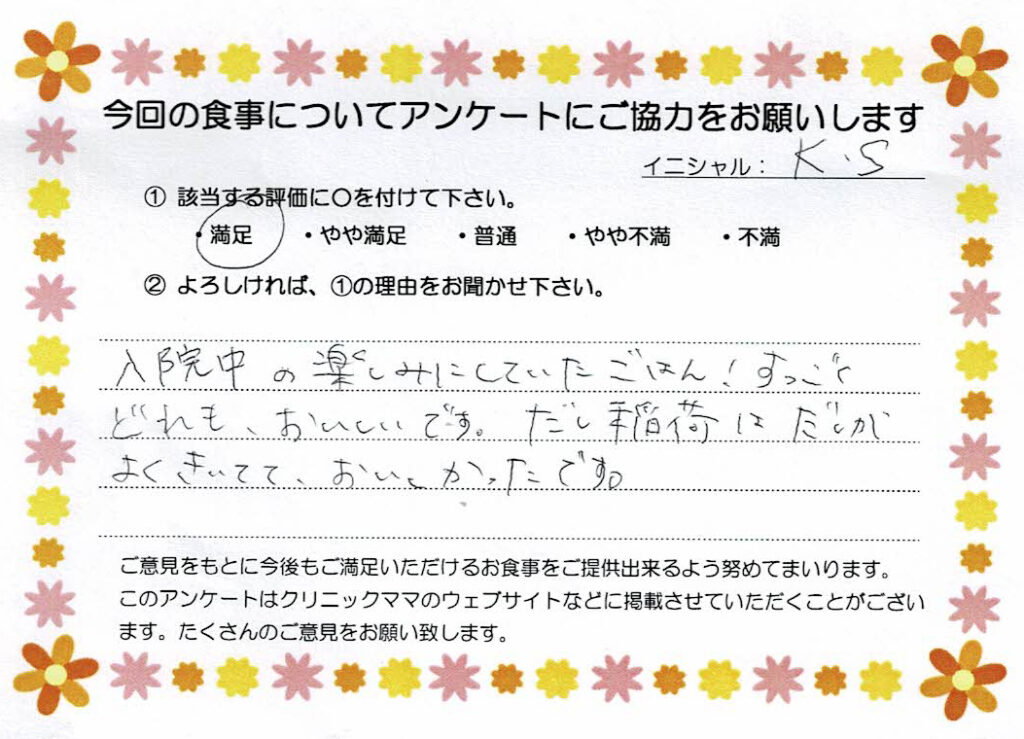 今回の食事についてアンケートにご協力をお願いします
イニシャル： K.S
① 該当する評価に〇を付けて下さい。
・満足 ・やや満足 ・普通 ・やや不満 ・不満
② よろしければ、①の理由をお聞かせ下さい。
入院中の楽しみにしていたごはん！すっごく
どれも、おいしいです。だし稲荷はだしが
よくきいてて、おいしかったです。
ご意見をもとに今後もご満足いただけるお食事をご提供出来るよう努めてまいります。
このアンケートはクリニックママのウェブサイトなどに掲載させていただくことがござい
ます。たくさんのご意見をお願い致します。